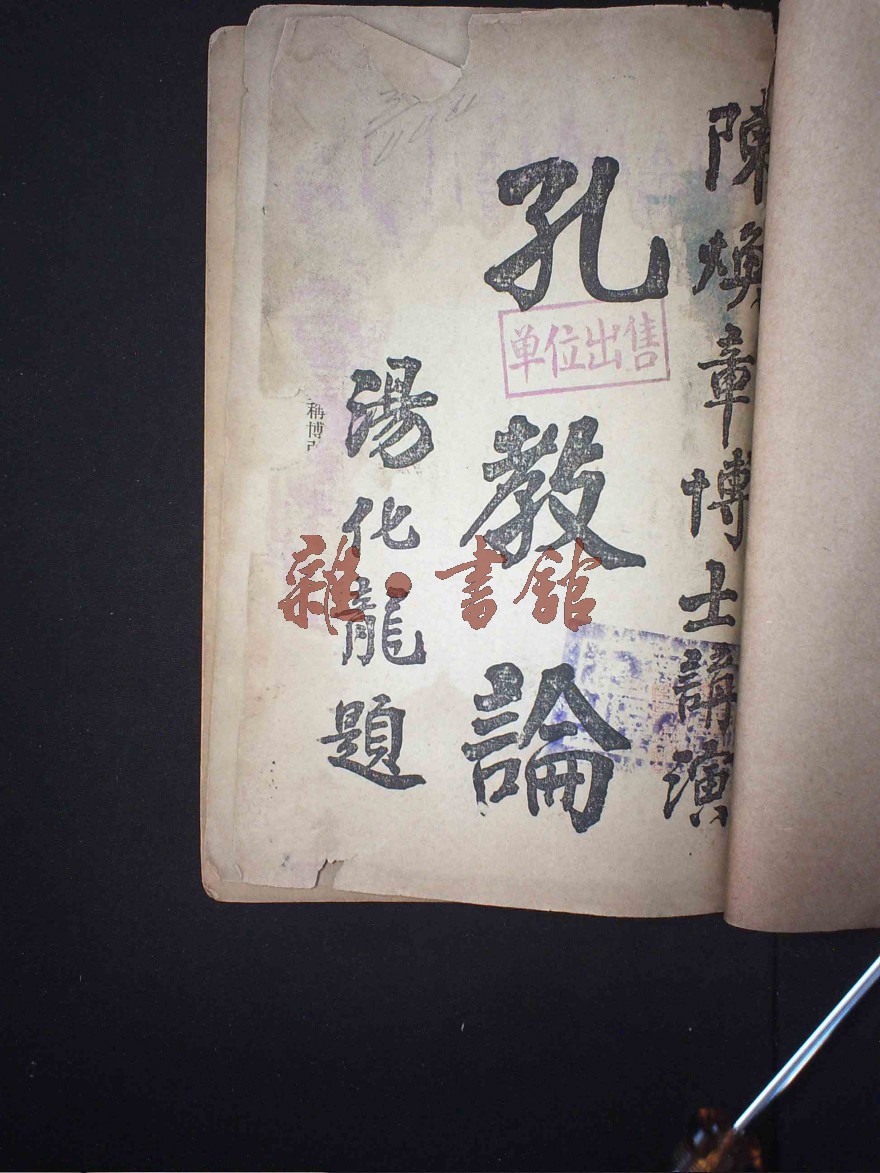 陳煥章博士講演
孔教論
单位出售
湯化龍題
稱博
雜·書館